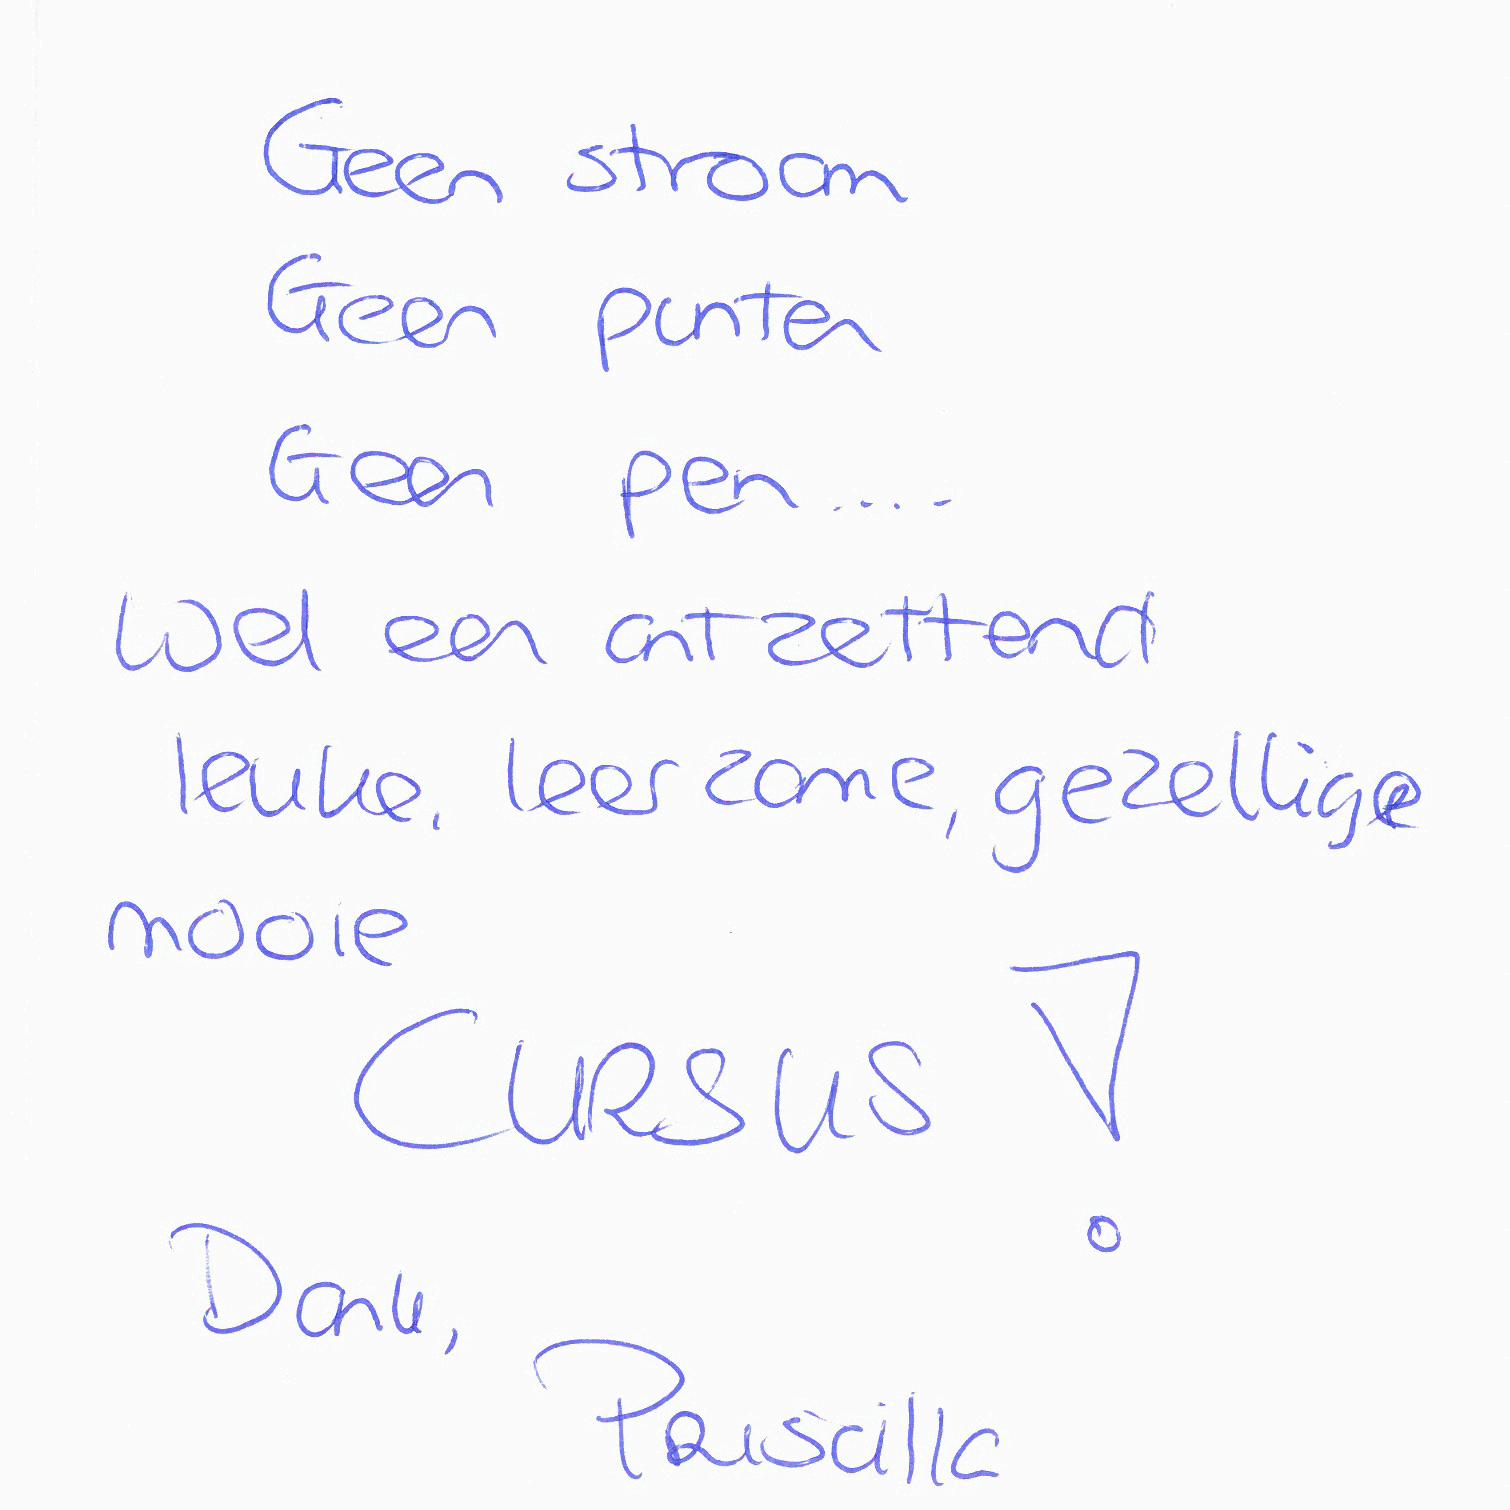 Geen stroom
Geen punten
Geen pen....
Wel een ontzettend
leuke, leerzame, gezellige
mooie
CURSUS!
Dank,
Priscilla